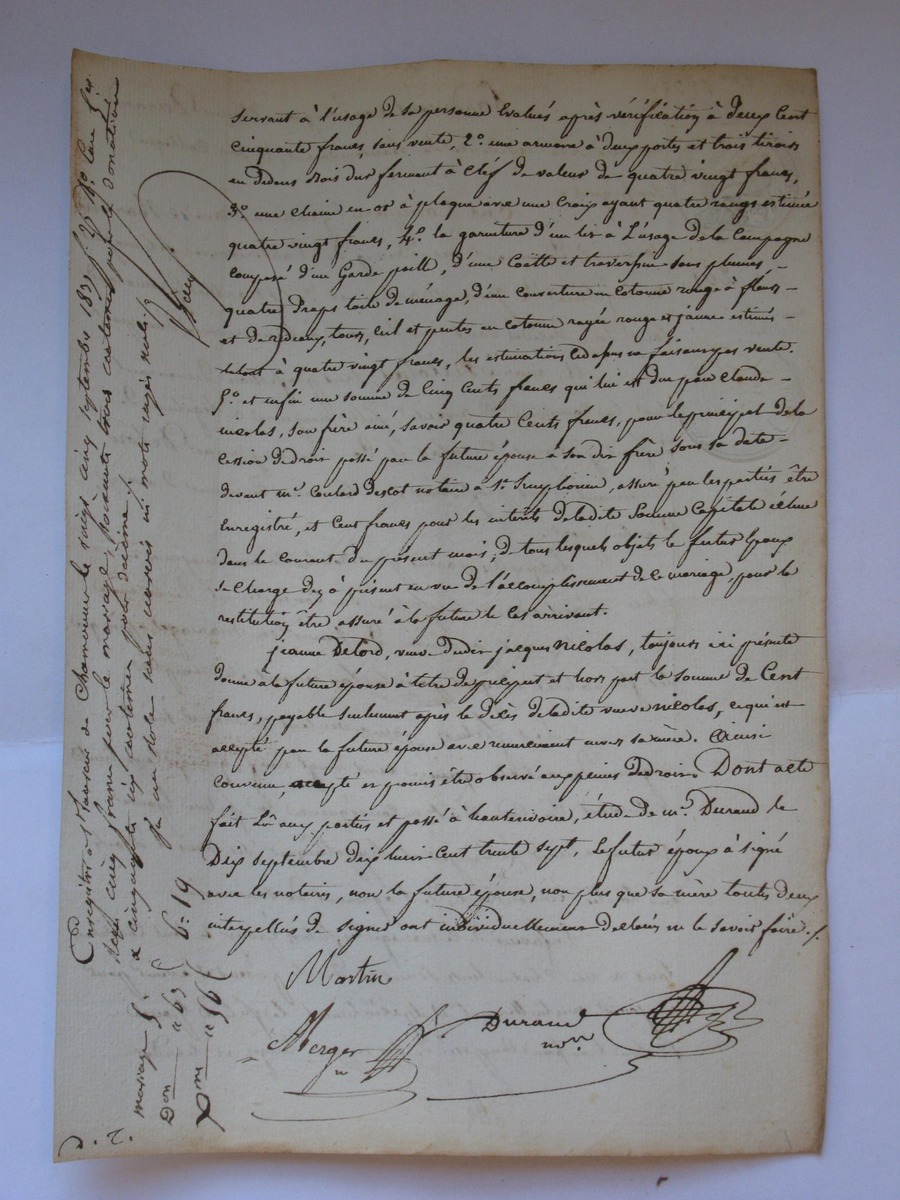 servant à l'usage de sa personne évalués après vérification à deux cent
cinquante francs, sans vente, 2.o une armoire à deux portes et trois tiroirs
en dedans bois dur fermant à clef de valeur de quatre vingt francs,
3.o une chaine en or à plaque avec une Croix ayant quatre rangs estimée
quatre vingt francs, 4.o la garniture d'un lit à l'usage de la Campagne
composé d'un Garde paille, d'une Coëtte et traversin sans plumes –
quatre Draps toile de ménage, d'une couverture en Cotonne rouge à fleurs –
et de rideaux, tours, ciel et pentes en cotonne rayée rouge et jaune estimés –
le tout à quatre vingt francs, les estimations ci dessus ne faisant pas vente.
5.o et enfin une somme de Cinq Cents francs qui lui est due par Claude –
nicolas, son frère ainé, savoir quatre Cents francs, pour le principal de la
cession de droits passé par la future épouse à son dit frère sous sa date –
devant m.e Coulard Descot notaire à St. Simphorien, assuré par les parties être
Enregistré, et Cent francs pour les interets de ladite Somme Capitale échue
dans le courant du présent mois, de tous lesquels objets le futur Epoux
se charge dez à présent en vue de l'accomplissement de ce mariage, pour la
restitution être assuré à la future le Cas arrivant.
jeanne Delord, veuve dudit jacques Nicolas, toujours ici présente
donne à la future épouse à titre de préciput et hors part la somme de Cent
francs, payable seulement après le décès de ladite veuve Nicolas, ce qui est
accepté par la future épouse avec remerciment envers sa mère. Ainsi
convenu, accepté et promis être observé aux peines de droit. Dont acte
fait Lu aux parties et passé à hauterivoire, étude de m.e Durand le
Dix septembre dix huit cent trente sept, le futur époux à signé
avec les notaires, non la future épouse, non plus que sa mère toutes deux
interpellés de signer ont individuellement déclarés ne le savoir faire ./.
Martin
Merger
n
Durand
no.re
Enregistré à St Laurent de Chamousset le vingt cinq septembre 1837 f. 25 V.o
Reçu cinq francs pour le mariage, soixante trois centimes pour la donation
et cinquante six centimes pour décime ./.
mariage 5.
Don " 63
Dme " 56
6 = 19